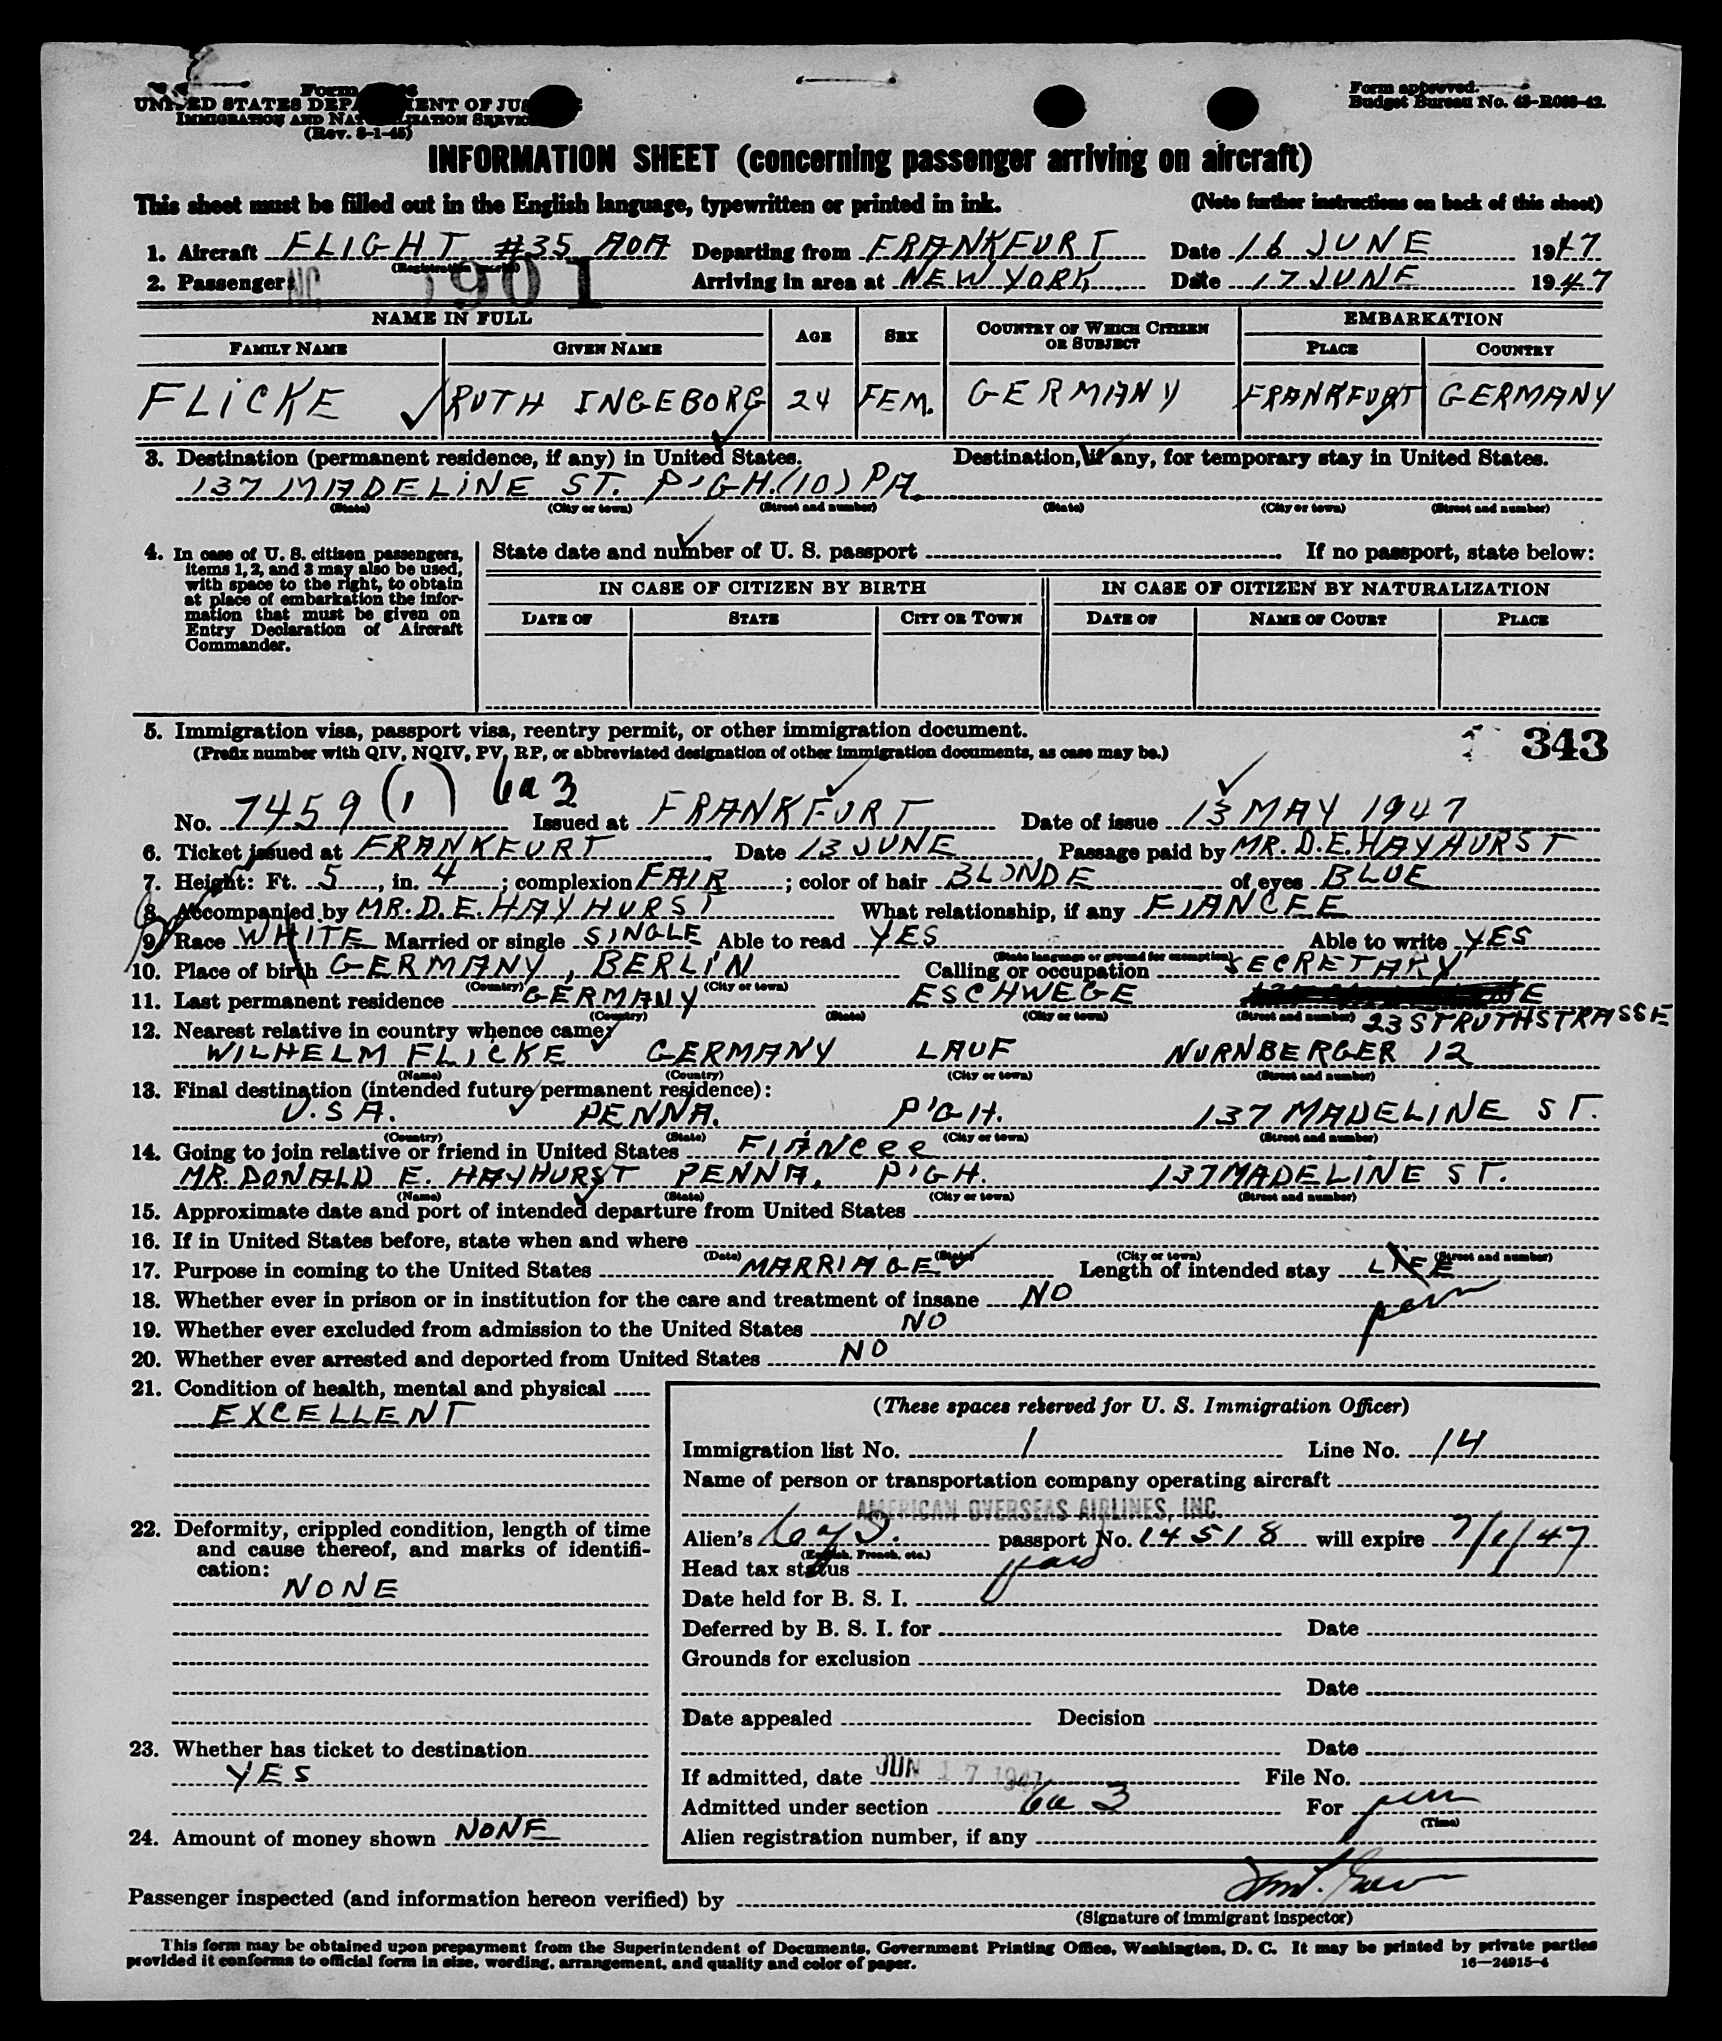 Form
UNITED STATES DEPARTMENT OF JUSTICE
IMMIGRATION AND NATURALIZATION SERVICE
(Rev. 8-1-45)
Form approved.
Budget Bureau No. 43-R065-42.
INFORMATION SHEET (concerning passenger arriving on aircraft)
This sheet must be filled out in the English language, typewritten or printed in ink. (Note further instructions on back of this sheet)
1. Aircraft FLIGHT #35 AOA Departing from FRANKFURT Date 16 JUNE 1947
(Registration marks)
2. Passenger: NC 901 Arriving in area at NEW YORK Date 17 JUNE 1947
NAME IN FULL AGE SEX COUNTRY OF WHICH CITIZEN OR SUBJECT EMBARKATION
FAMILY NAME GIVEN NAME PLACE COUNTRY
FLICKE RUTH INGEBORG 24 FEM. GERMANY FRANKFURT GERMANY
3. Destination (permanent residence, if any) in United States. Destination, if any, for temporary stay in United States.
137 MADELINE ST. P'GH. (10) PA.
(State) (City or town) (Street and number) (State) (City or town) (Street and number)
4. In case of U. S. citizen passengers, items 1, 2, and 3 may also be used, with space to the right, to obtain at place of embarkation the information that must be given on Entry Declaration of Aircraft Commander.
State date and number of U. S. passport If no passport, state below:
IN CASE OF CITIZEN BY BIRTH IN CASE OF CITIZEN BY NATURALIZATION
DATE OF STATE CITY OR TOWN DATE OF NAME OF COURT PLACE
5. Immigration visa, passport visa, reentry permit, or other immigration document.
(Prefix number with QIV, NQIV, PV, RP, or abbreviated designation of other immigration documents, as case may be.)
343
No. 7459 (1) 6a3 Issued at FRANKFURT Date of issue 13 MAY 1947
6. Ticket issued at FRANKFURT Date 13 JUNE Passage paid by MR. D.E. HAYHURST
7. Height: Ft. 5, in. 4; complexion FAIR; color of hair BLONDE of eyes BLUE
8. Accompanied by MR. D.E. HAYHURST What relationship, if any FIANCEE
9. Race WHITE Married or single SINGLE Able to read YES Able to write YES
(State language or ground for exemption)
10. Place of birth GERMANY, BERLIN Calling or occupation SECRETARY
(Country) (City or town)
11. Last permanent residence GERMANY ESCHWEGE 23 STRUTHSTRASSE
(Country) (State) (City or town) (Street and number)
12. Nearest relative in country whence came:
WILHELM FLICKE GERMANY LAUF NURNBERGER 12
(Name) (Country) (City or town) (Street and number)
13. Final destination (intended future permanent residence):
U.S.A. PENNA. P'GH. 137 MADELINE ST.
(Country) (State) (City or town) (Street and number)
14. Going to join relative or friend in United States FIANCEE
MR. DONALD E. HAYHURST PENNA. P'GH. 137 MADELINE ST.
(Name) (State) (City or town) (Street and number)
15. Approximate date and port of intended departure from United States
16. If in United States before, state when and where
(Date) (State) (City or town) (Street and number)
17. Purpose in coming to the United States MARRIAGE Length of intended stay LIFE
perm
18. Whether ever in prison or in institution for the care and treatment of insane NO
19. Whether ever excluded from admission to the United States NO
20. Whether ever arrested and deported from United States NO
21. Condition of health, mental and physical
EXCELLENT
22. Deformity, crippled condition, length of time and cause thereof, and marks of identification:
NONE
23. Whether has ticket to destination
YES
24. Amount of money shown NONE
(These spaces reserved for U. S. Immigration Officer)
Immigration list No. 1 Line No. 14
Name of person or transportation company operating aircraft
AMERICAN OVERSEAS AIRLINES, INC.
Alien's passport No. 14518 will expire 7/1/47
(English, French, etc.)
Head tax status
Date held for B. S. I.
Deferred by B. S. I. for Date
Grounds for exclusion
Date
Date appealed Decision
Date
If admitted, date JUN 17 1947 File No.
Admitted under section 6a 3 For perm
(Time)
Alien registration number, if any
Passenger inspected (and information hereon verified) by
(Signature of immigrant inspector)
This form may be obtained upon prepayment from the Superintendent of Documents, Government Printing Office, Washington, D. C. It may be printed by private parties
provided it conforms to official form in size, wording, arrangement, and quality and color of paper.
16—24915-4